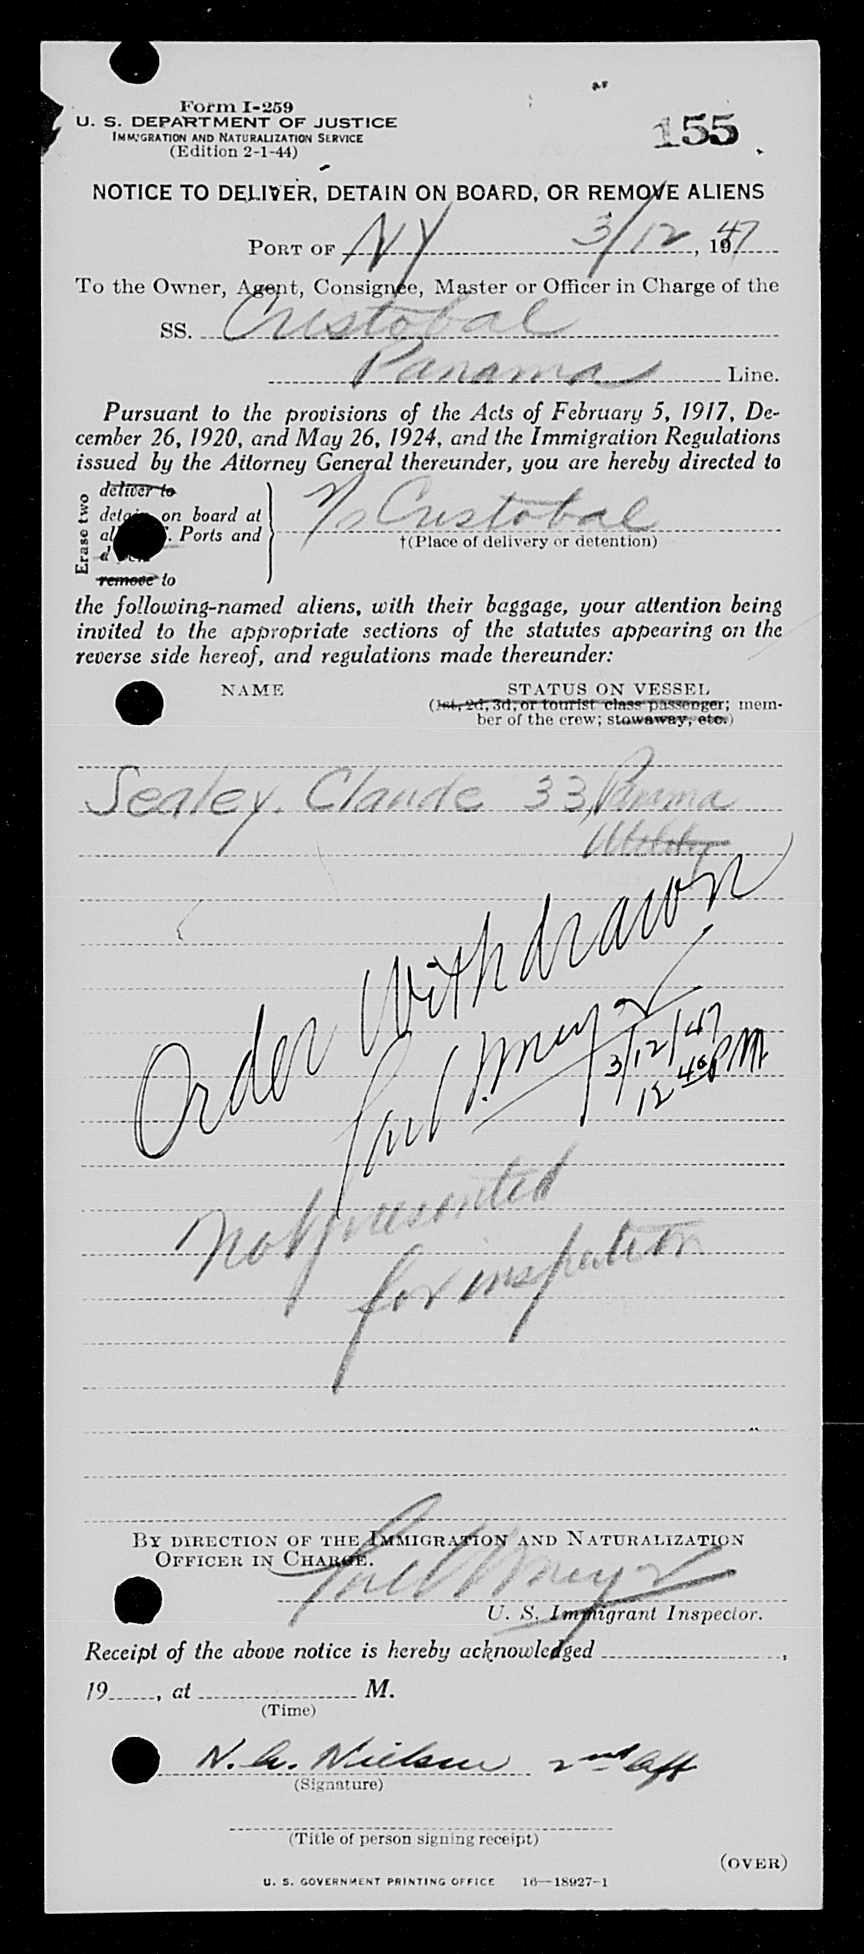 Form I-259
U. S. DEPARTMENT OF JUSTICE
IMMIGRATION AND NATURALIZATION SERVICE
(Edition 2-1-44)
155
NOTICE TO DELIVER, DETAIN ON BOARD, OR REMOVE ALIENS
PORT OF NY 3/12, 1947
To the Owner, Agent, Consignee, Master or Officer in Charge of the
SS. Cristobal
Panama Line.
Pursuant to the provisions of the Acts of February 5, 1917, De-
cember 26, 1920, and May 26, 1924, and the Immigration Regulations
issued by the Attorney General thereunder, you are hereby directed to
Erase two
deliver to
detain on board at
Ports and
remove to
Cristobal
†(Place of delivery or detention)
the following-named aliens, with their baggage, your attention being
invited to the appropriate sections of the statutes appearing on the
reverse side hereof, and regulations made thereunder:
NAME STATUS ON VESSEL
(1st, 2d, 3d, or tourist class passenger; mem-
ber of the crew; stowaway, etc.)
Sealey, Claude 33 Panama
Order Withdrawn
3/12/47
12 40 PM
not presented
for inspection
BY DIRECTION OF THE IMMIGRATION AND NATURALIZATION
OFFICER IN CHARGE.
U. S. Immigrant Inspector.
Receipt of the above notice is hereby acknowledged ,
19 , at M.
(Time)
N. A. Nielsen 2nd Off
(Signature)
(Title of person signing receipt)
(OVER)
U. S. GOVERNMENT PRINTING OFFICE 16—18927-1